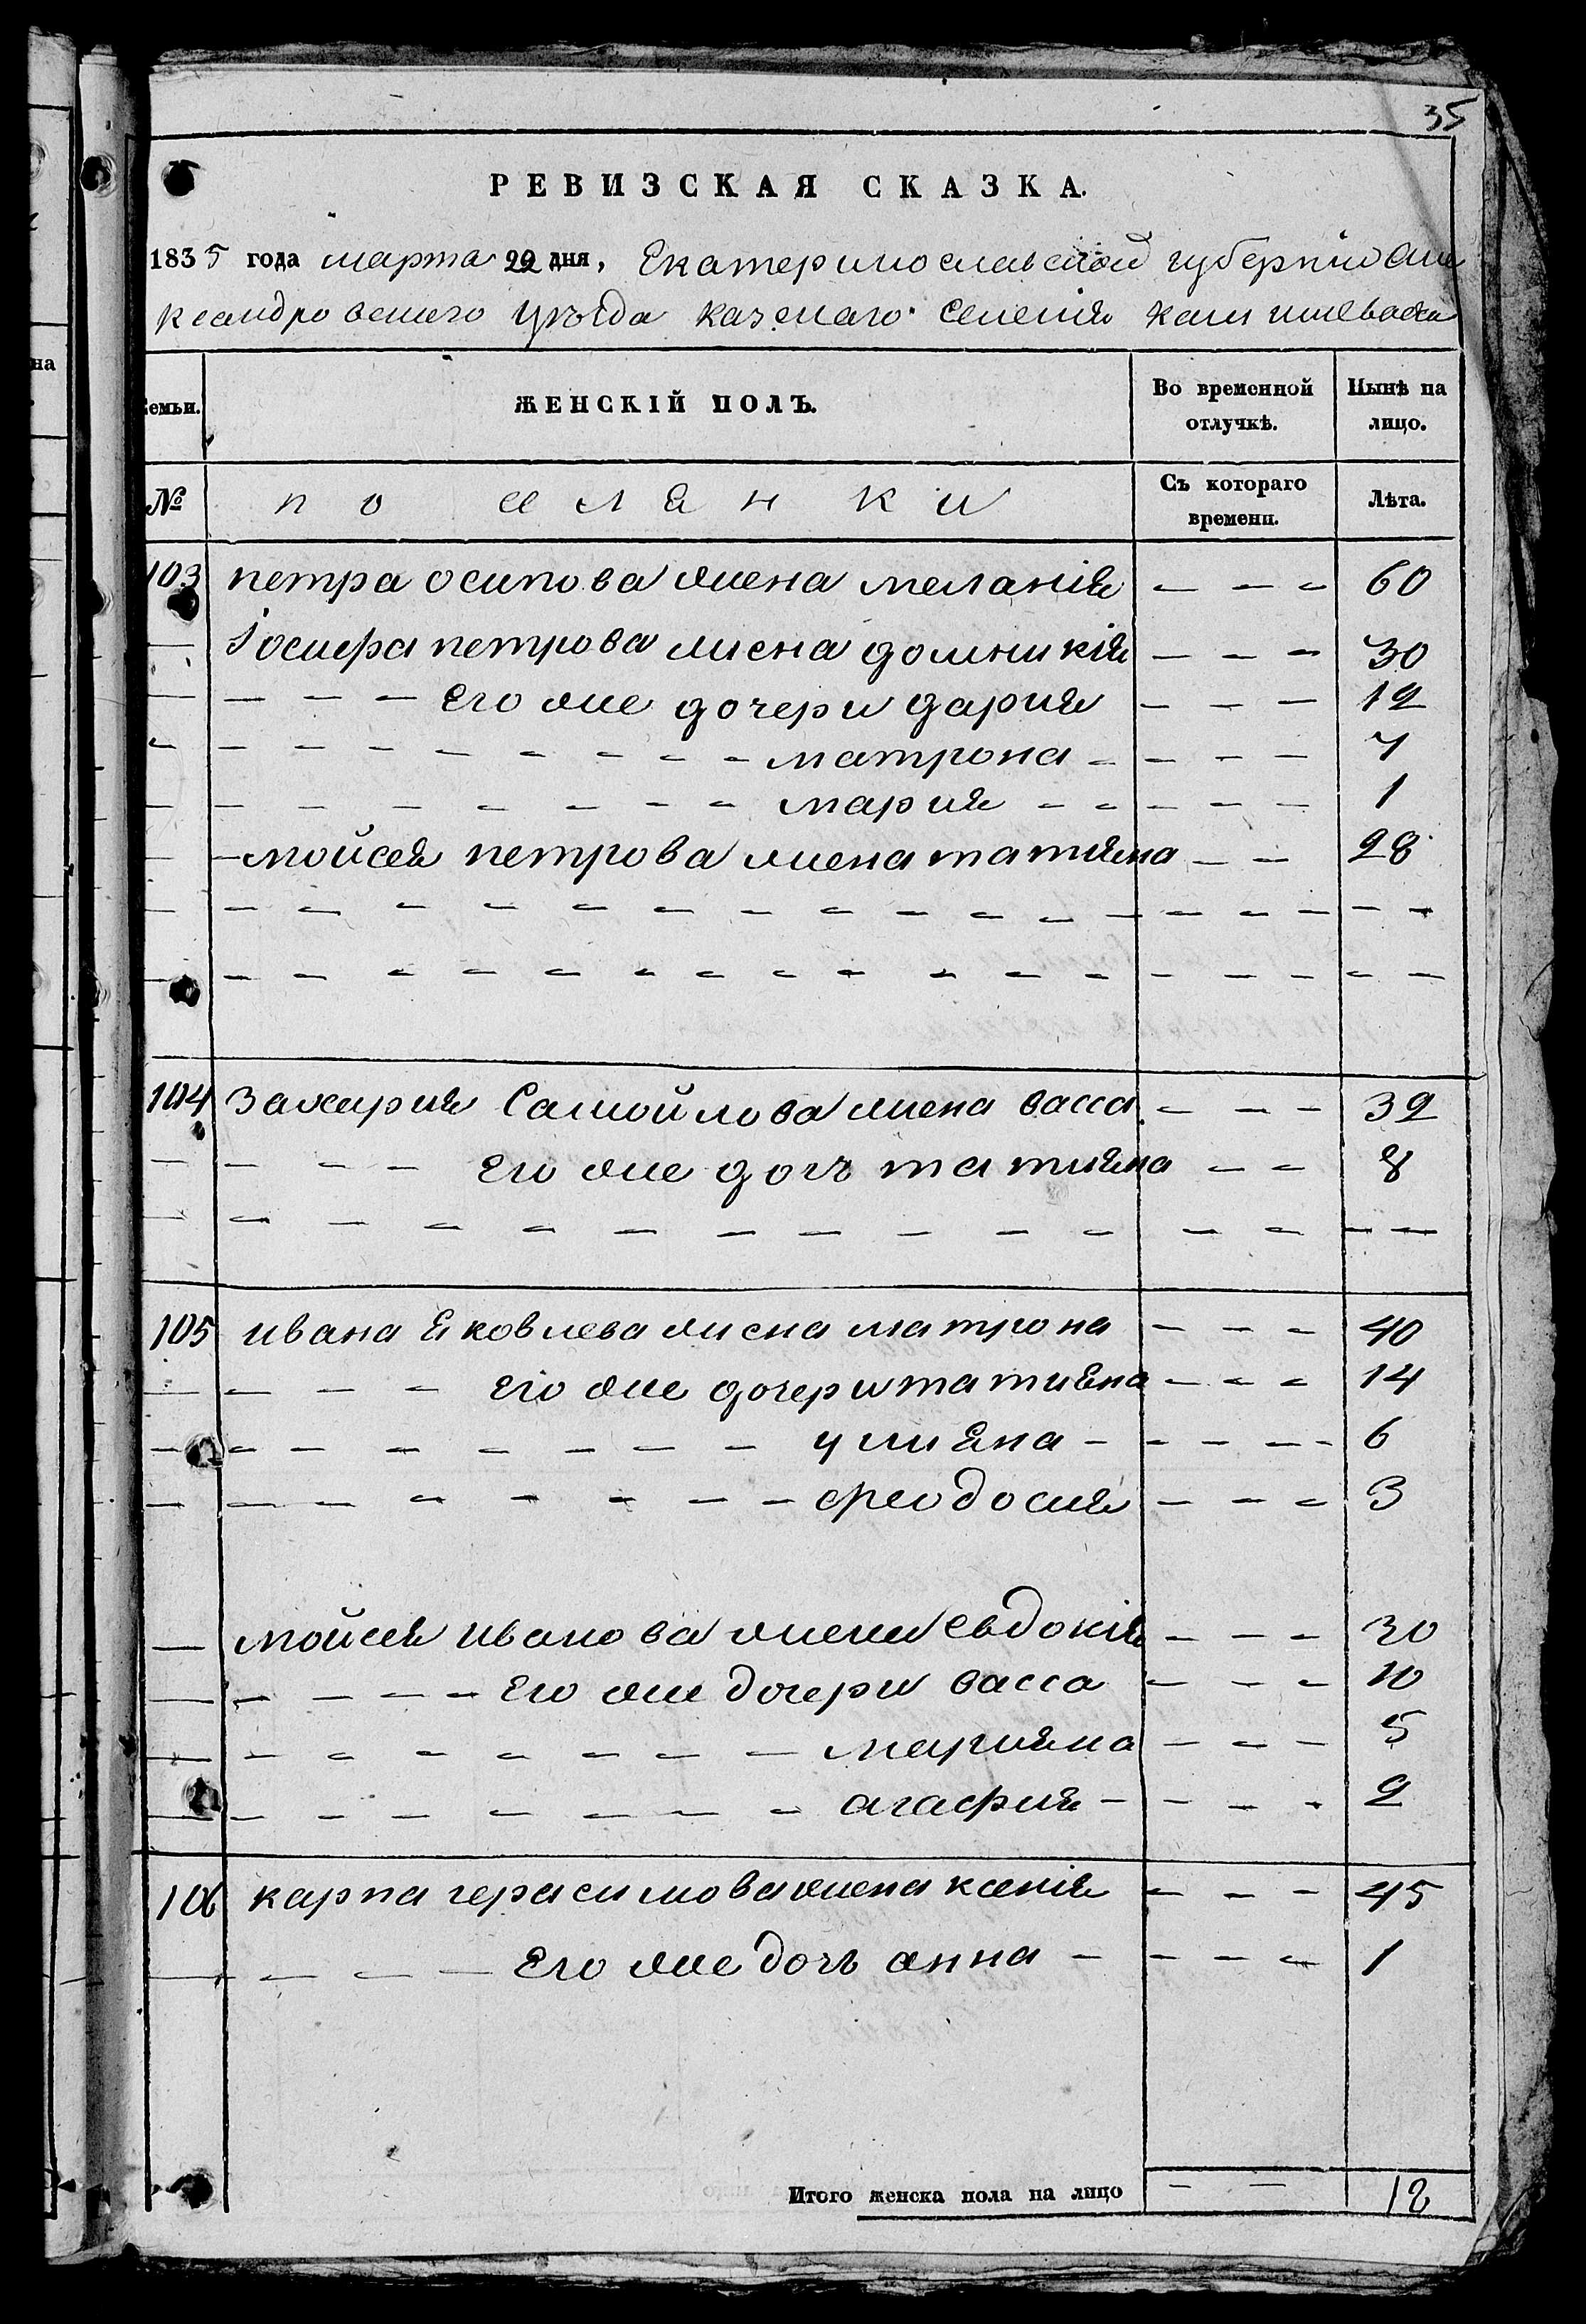 35
РЕВИЗСКАЯ СКАЗКА.
1835 года марта 22 дня, Екатеринославской губернии Але
ксандровского уѣзда казенаго селения
Семьи.
ЖЕНСКІЙ ПОЛЪ.
Во временной отлучкѣ.
Нынѣ на лицо.
№
поселянки
Съ котораго времени.
Лѣта.
103 петра осипова жена меланія — — — 60
— Іосифа петрова жена домникія — — — 30
— — — — его же дочери дария — — — 12
— — — — — — — — матрона — — — — 7
— — — — — — — — мария — — — — — 1
— — мойсея петрова жена татияна — — 28
104 Захария Самойлова жена васса — — — 32
— — — — его же дочь татияна — — 8
105 ивана яковлева жена матрона — — — 40
— — — — его же дочери татияна — — — 14
— — — — — — — — улияна — — — — — 6
— — — — — — — — феодосия — — — 3
— мойсея иванова жена евдокія — — — 30
— — — — — его же дочери васса — — — 10
— — — — — — — — марияна — — — 5
— — — — — — — — агафия — — — — 2
106 карпа герасимова жена ксенія — — — 45
— — — — — его же дочь анна — — — — 1
Итого женска пола на лицо — — 18